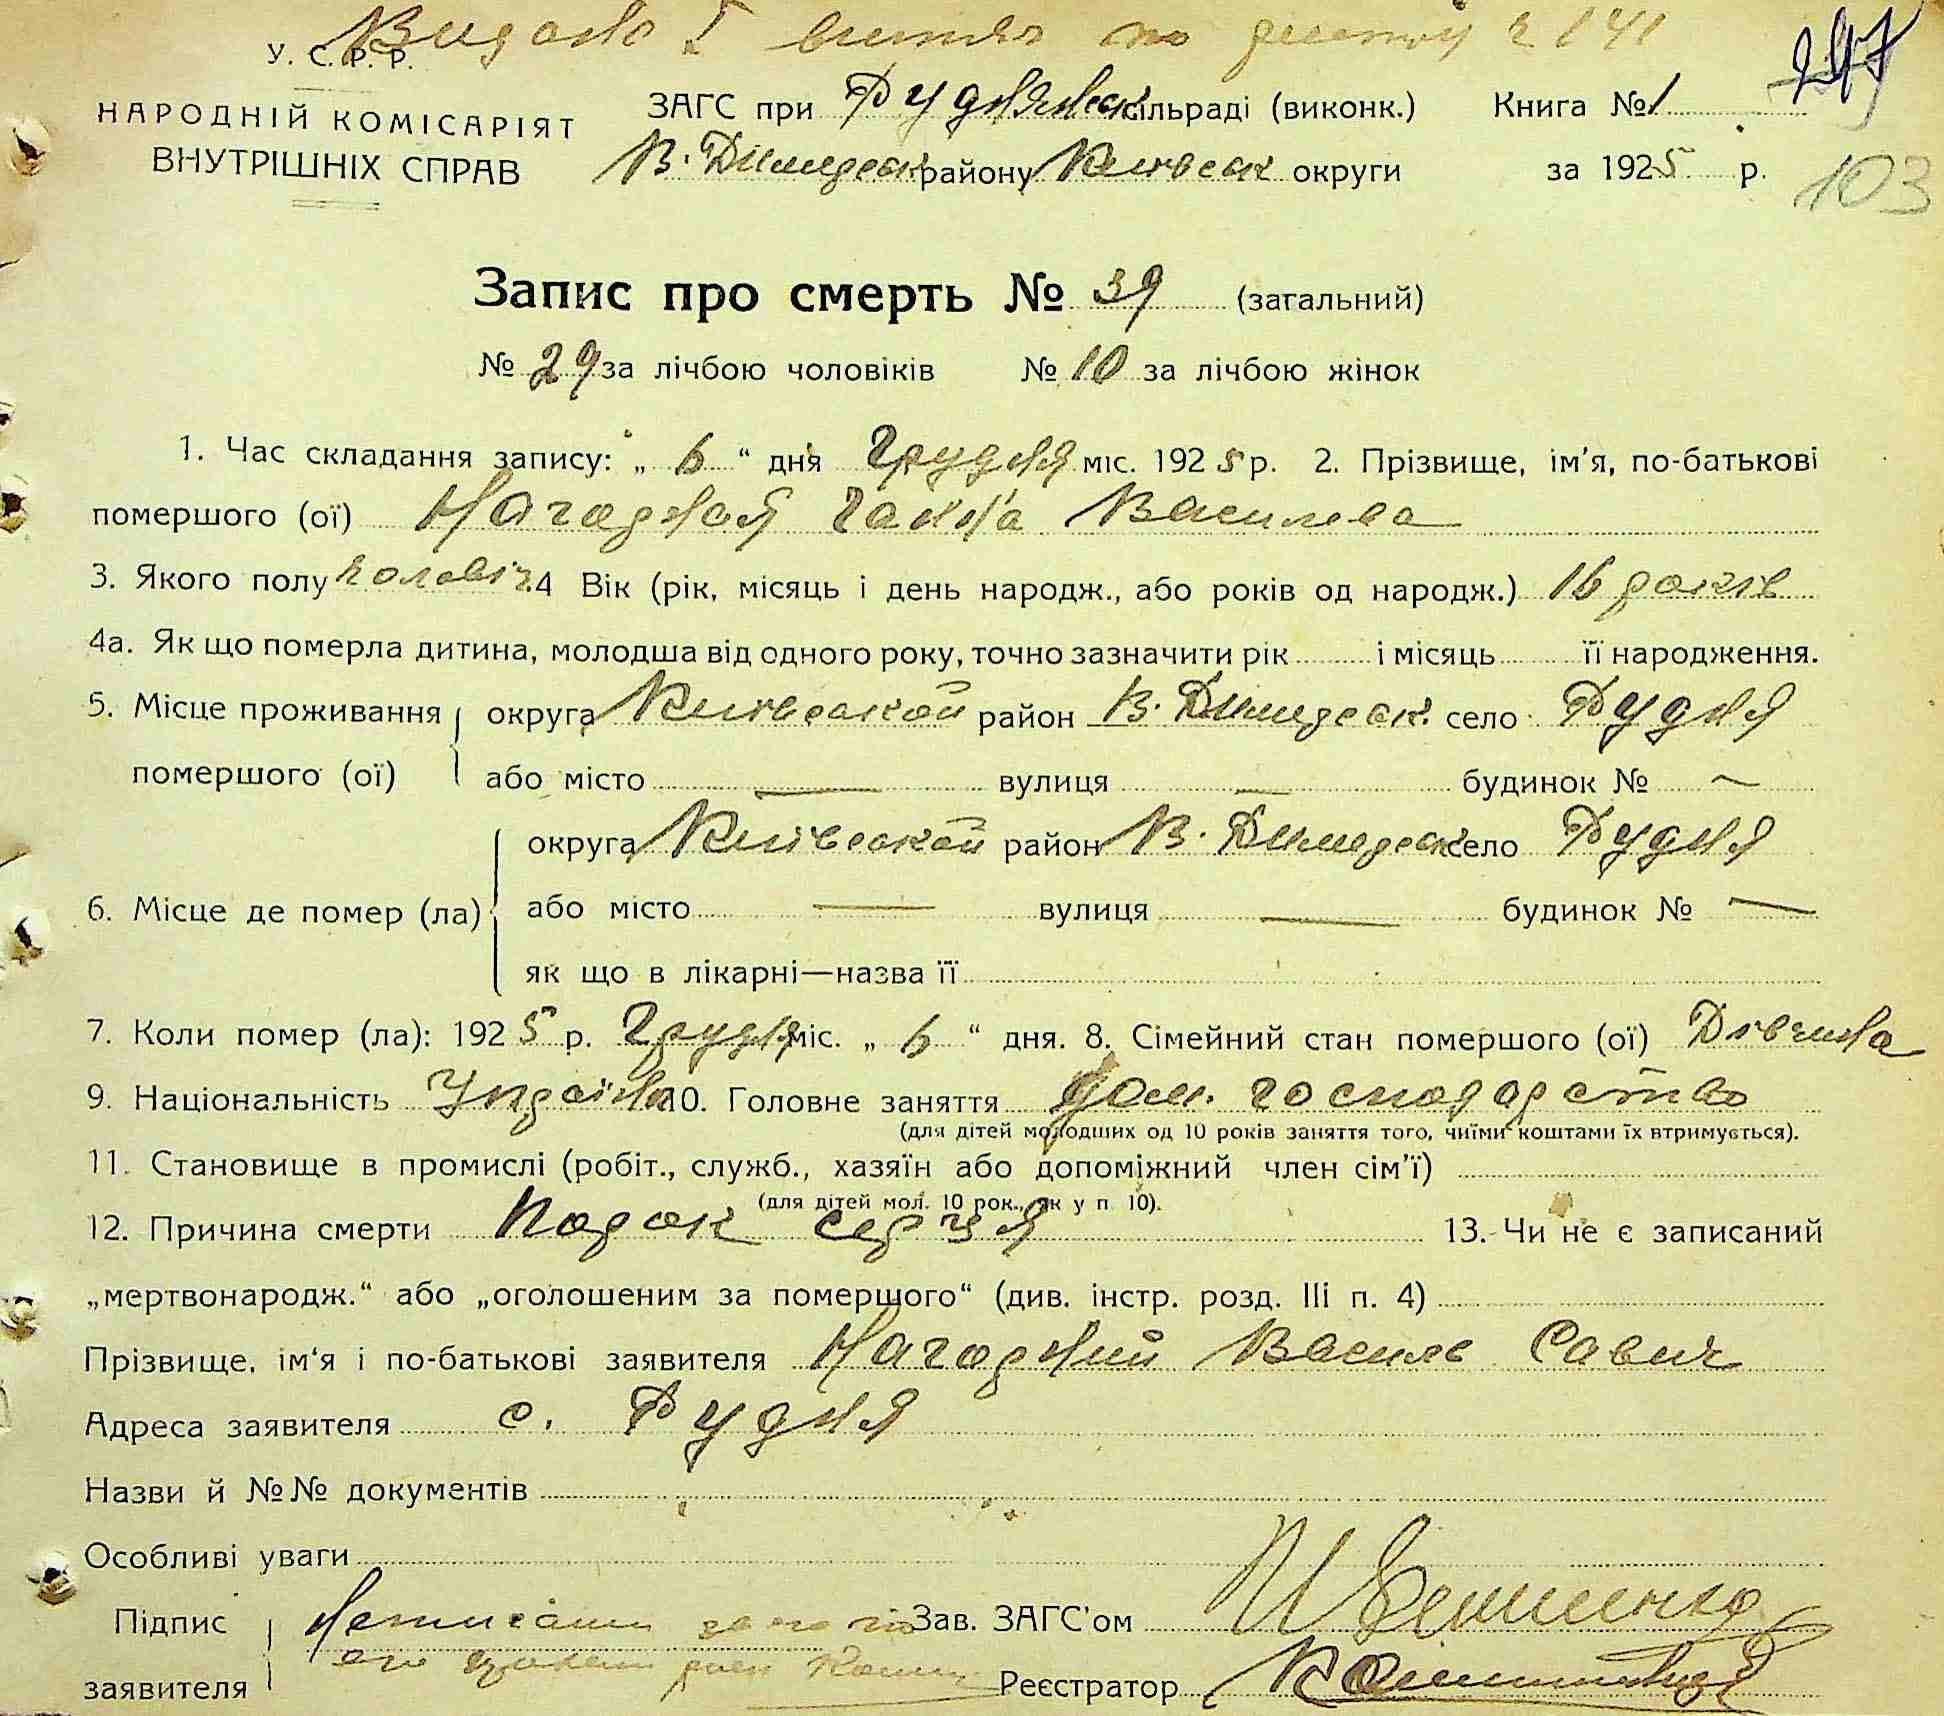 Видано I витяг по реєстру 2141
У. С. Р. Р.
297
НАРОДНІЙ КОМІСАРІЯТ
ВНУТРІШНІХ СПРАВ
ЗАГС при Руднянск. сільраді (виконк.) Книга № 1
В. Димерск району Київськ округи за 1925 р.
103
Запис про смерть № 39 (загальний)
№ 29 за лічбою чоловіків № 10 за лічбою жінок
1. Час складання запису: „ 6 “ дня Грудня міс. 1925 р. 2. Прізвище, ім'я, по-батькові
помершого (ої) Нагорная Ганна Василева
3. Якого полу чоловіч. 4 Вік (рік, місяць і день народж., або років од народж.) 16 років
4а. Як що померла дитина, молодша від одного року, точно зазначити рік і місяць її народження.
5. Місце проживання округа Київської район В. Димерск. село Рудня
помершого (ої) або місто — вулиця — будинок № —
округа Київської район В. Димерск село Рудня
6. Місце де помер (ла) або місто — вулиця — будинок № —
як що в лікарні—назва її
7. Коли помер (ла): 1925 р. Грудня міс. „ 6 “ дня. 8. Сімейний стан помершого (ої) Дівчина
9. Національність Україн. 10. Головне заняття дом. господарство
(для дітей молодших од 10 років заняття того, чиїми коштами їх втримується).
11. Становище в промислі (робіт., служб., хазяїн або допоміжний член сім'ї)
(для дітей мол. 10 рок., як у п 10).
12. Причина смерти Порок серця 13. Чи не є записаний
„мертвонародж.“ або „оголошеним за помершого“ (див. інстр. розд. III п. 4)
Прізвище, ім'я і по-батькові заявителя Нагорний Василь Савич
Адреса заявителя с. Рудня
Назви й №№ документів
Особливі уваги
Підпис Неписьмен Зав. ЗАГС'ом
заявителя Реєстратор